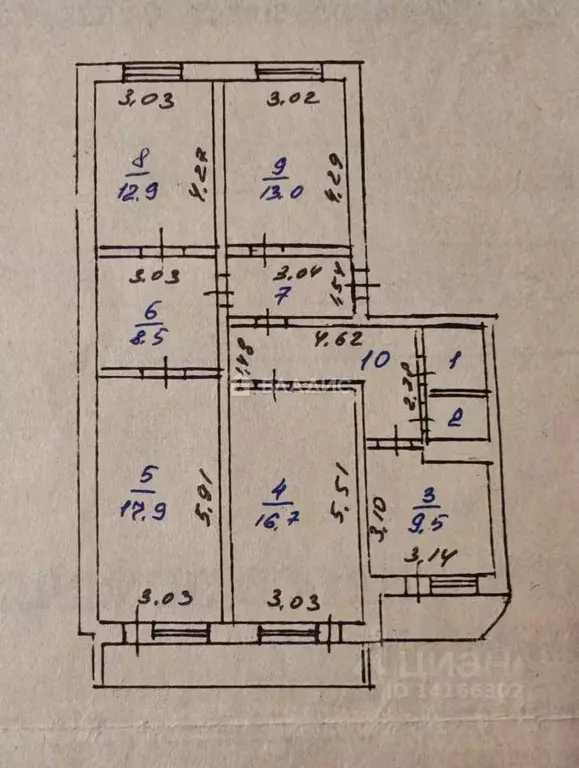 3.03
3.02
8
12.9
4.27
9
13.0
4.29
3.03
3.04
7
1.54
6
8.5
4.62
1.48
10
1
2.38
2
ВЛАДИС
5
17.9
5.91
4
16.7
5.51
3
9.5
3.10
3.14
3.03
3.03
ЦИАН
ID 14166302